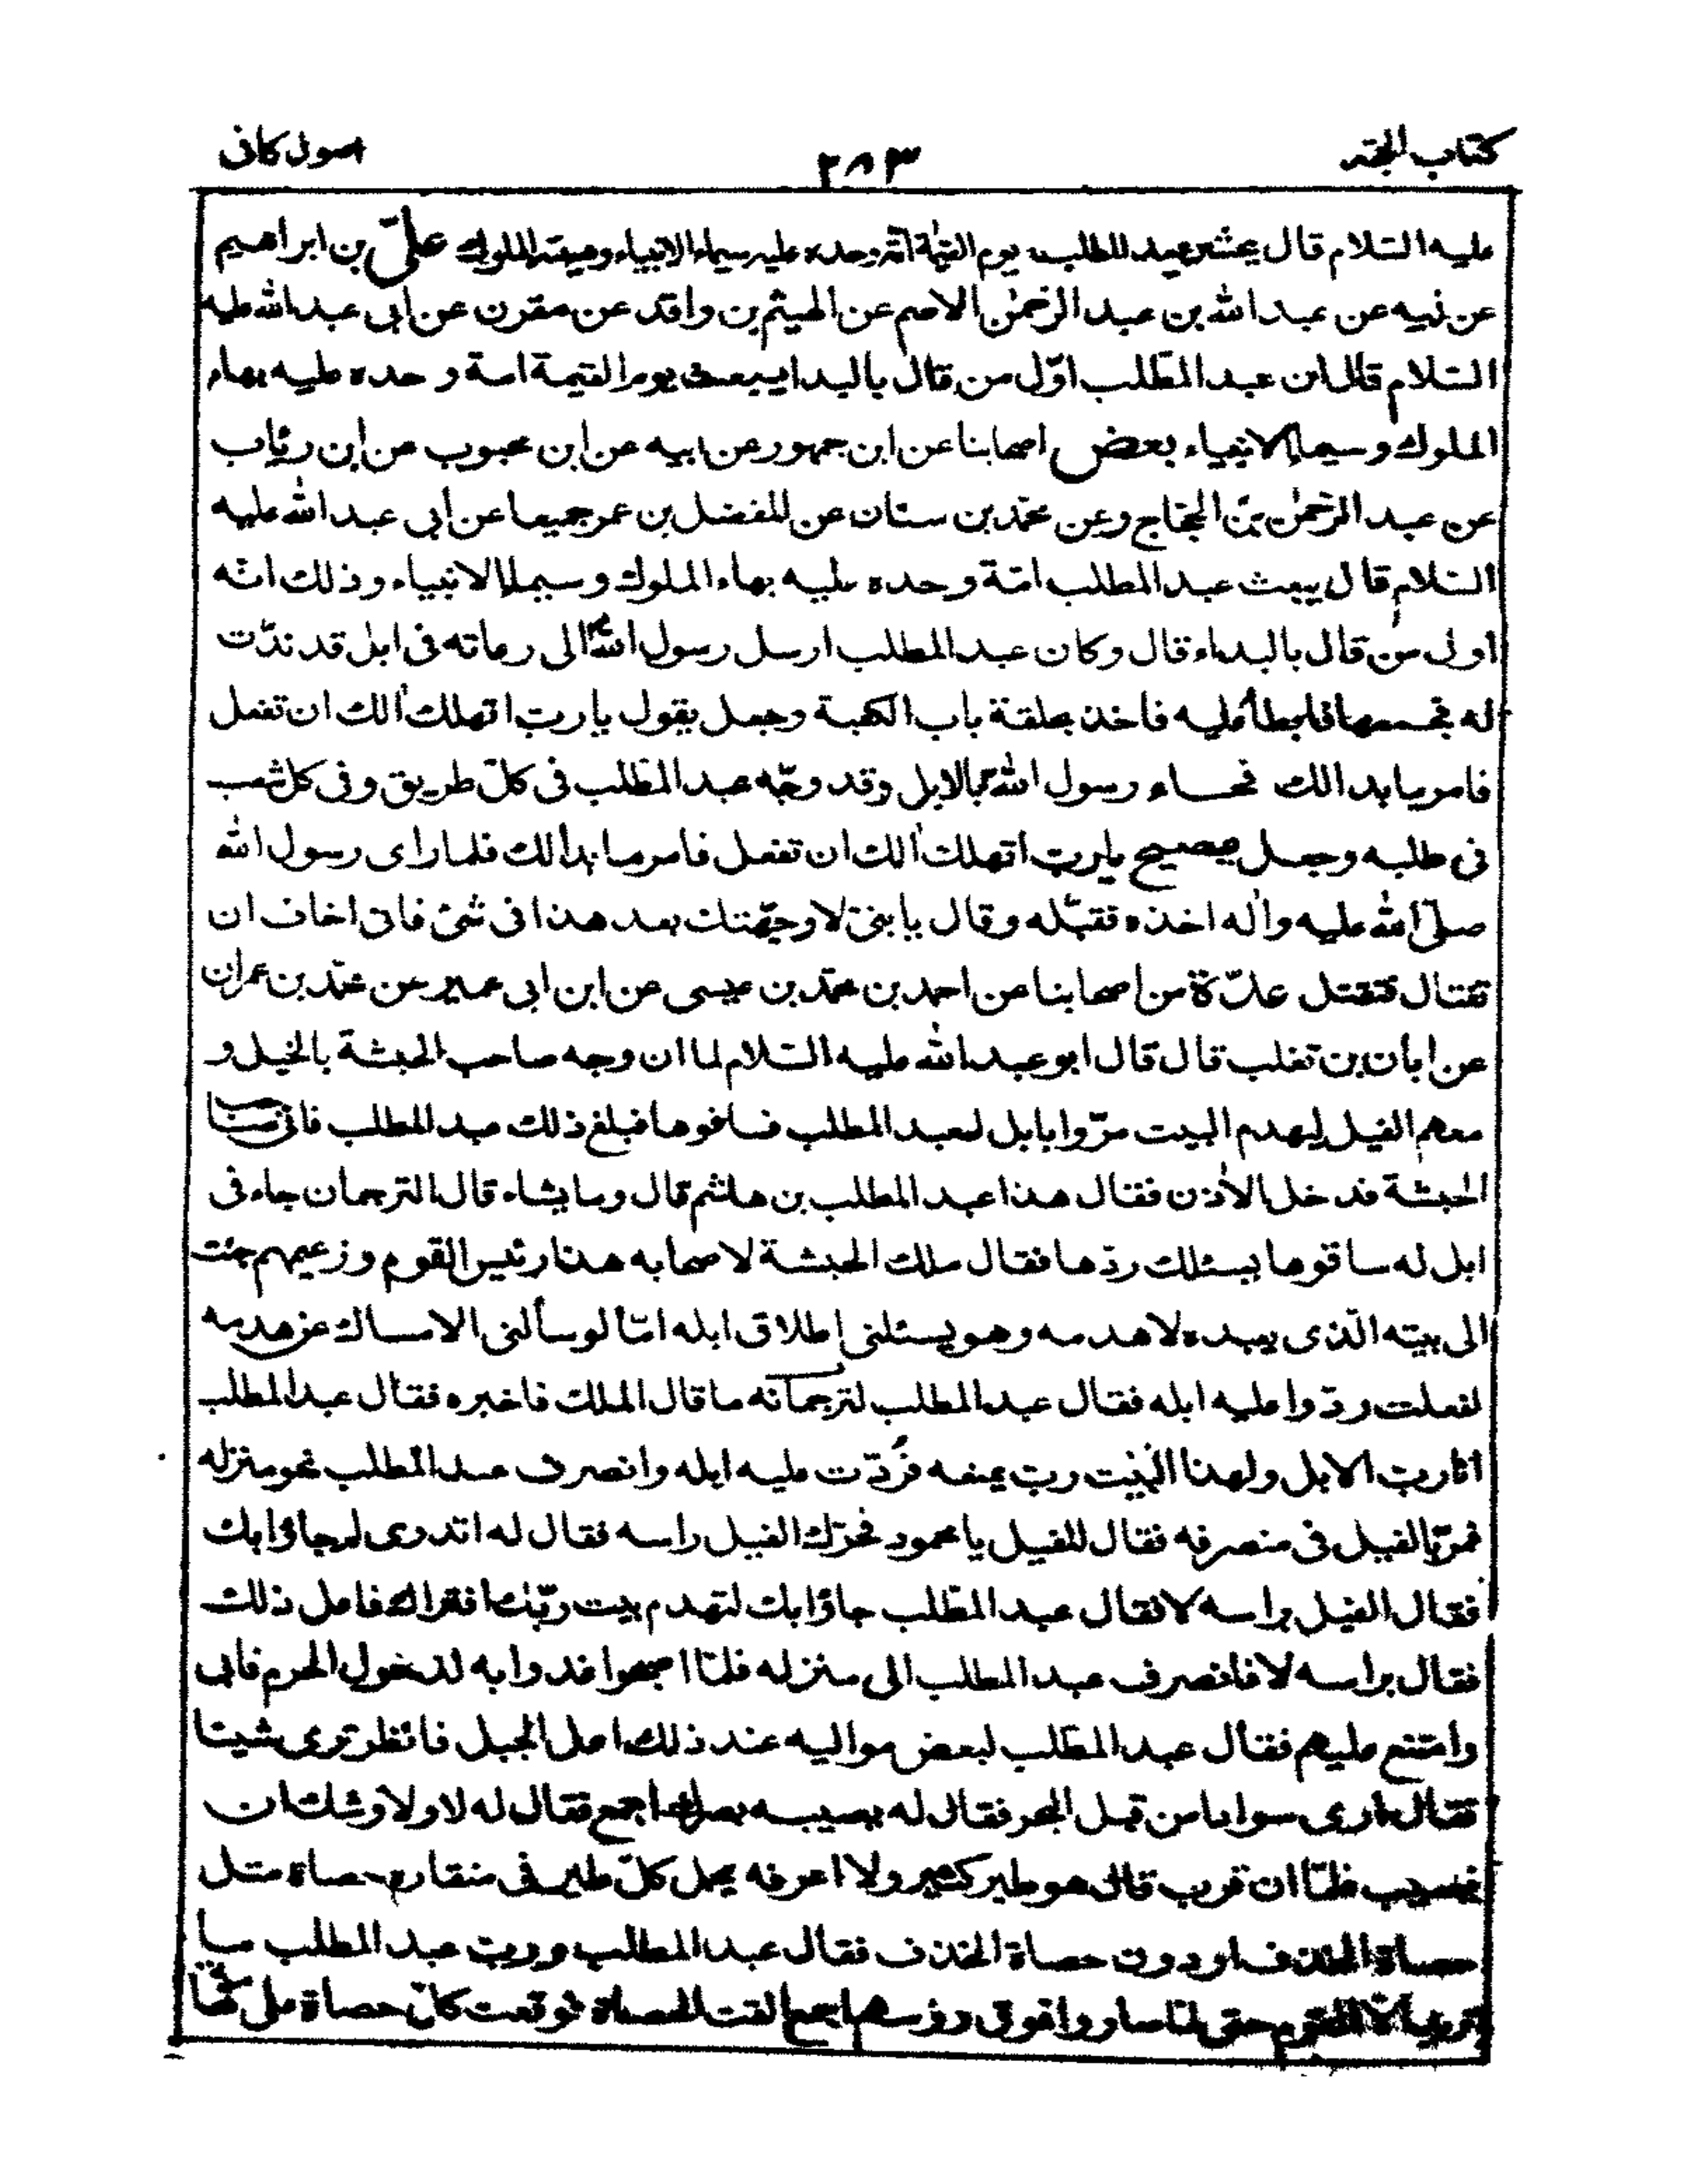 كتاب الحجة ٢٨٣ اصول كافى
عليه السلام قال يحشر عبد المطلب يوم القيمة امّة وحده عليه سيماء الانبياء وهيبة الملوك علىّ بن ابراهيم
عن ابيه عن عبد الله بن عبد الرحمٰن الاصم عن الهيثم بن واقد عن مقرن عن ابى عبد الله عليه
السّلام قال ان عبد المطّلب اوّل من قال بالبدا يبعث يوم القيمة امة وحده عليه بهاء
الملوك وسيماء الانبياء بعض اصحابنا عن ابن جمهور عن ابيه عن ابن محبوب عن ابن رئاب
عن عبد الرّحمٰن بن الحجّاج وعن محمّد بن سنان عن المفضل بن عمر جميعا عن أبى عبد الله عليه
السّلام قال يبعث عبد المطلب امّة وحده عليه بهاء الملوك وسيماء الانبياء وذلك انّه
اول من قال بالبداء قال وكان عبد المطلب ارسل رسول الله الى رعاته فى ابل قد ندّت
له فجمعها فابطأ عليه فاخذ بحلقة باب الكعبة وجعل يقول يا ربّ اتهلك ألك ان تفعل
فامر ما بدالك فجاء رسول الله بالابل وقد وجّه عبد المطّلب فى كلّ طريق وفى كل شعب
فى طلبه وجعل يصيح يا ربّ اتهلك ألك ان تفعل فامر ما بدالك فلما راى رسول الله
صلّى الله عليه وآله اخذه فقبّله وقال يا بنىّ لا وجّهتك بعد هذا فى شئ فانى اخاف ان
تغتال فتقتل علّة من اصحابنا عن احمد بن محمّد بن عيسى عن ابن ابى عمير عن محمّد بن عمران
عن ابان بن تغلب قال قال ابو عبد الله عليه السّلام لما ان وجه صاحب الحبشة بالخيل و
معهم الفيل ليهدم البيت مرّوا بابل لعبد المطلب فساقوها فبلغ ذلك عبد المطلب فاتى صاحب
الحبشة فدخل الآذن فقال هذا عبد المطلب بن هاشم قال وما يشاء قال الترجمان جاء فى
ابل له ساقوها يسئلك ردّها فقال ملك الحبشة لاصحابه هذا رئيس القوم وزعيمهم جئت
الى بيته الّذى يعبده لاهدمه وهو يسئلنى اطلاق ابله امّا لو سألنى الامساك عن هدمه
لفعلت ردّوا عليه ابله فقال عبد المطلب لترجمانه ما قال الملك فاخبره فقال عبد المطلب
انا ربّ الابل ولهذا البيت ربّ يمنعه فرُدّت عليه ابله وانصرف عبد المطلب نحو منزله
فمرّ بالفيل فى منصرفه فقال للفيل يا محمود فحرّك الفيل راسه فقال له اتدرى لم جاؤا بك
فقال الفيل براسه لا فقال عبد المطّلب جاؤا بك لتهدم بيت ربّك افتراك فاعل ذلك
فقال براسه لا فانصرف عبد المطلب الى منزله فلمّا اصبحوا غدوا به لدخول الحرم فابى
وامتنع عليهم فقال عبد المطّلب لبعض مواليه عند ذلك اعل الجبل فانظر ترى شيئا
فقال ارى سوادا من قبل البحر فقال له يصيبه بصرك اجمع فقال له لا ولاوشك ان
يصيب فلمّا ان قرب قال هو طير كثير ولا اعرفه يحمل كلّ طير فى منقاره حصاة مثل
حصاة الخذف او دون حصاة الخذف فقال عبد المطلب وربّ عبد المطلب ما
تريد الا القوم حتى لمّا صاروا فوق رؤسهم اجمع القت الحصاة فوقعت كلّ حصاة على